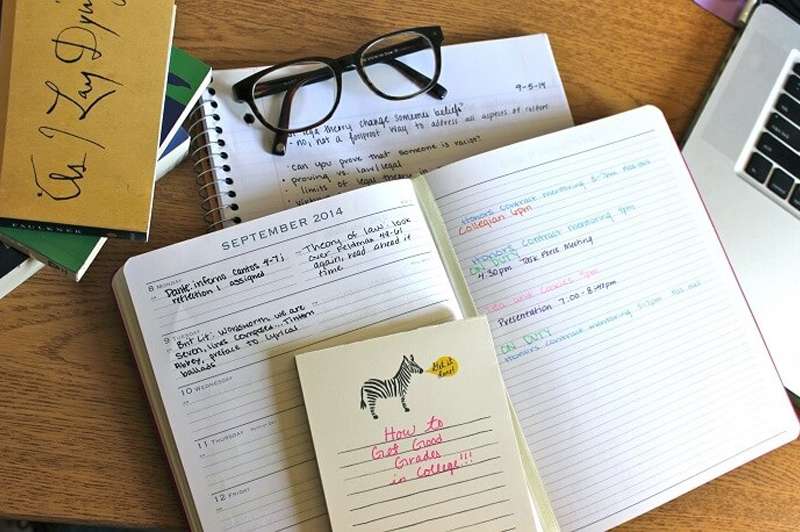 As I Lay Dying
FAULKNER
9-5-14
legal theory change someones beliefs?
• no, not a foolproof way to address all aspects of culture
• can you prove that someone is racist?
• proving vs. law/legal
• limits of legal theory in
SEPTEMBER 2014
8 MONDAY
Dante: inferno Cantos 4-7;
reflection 1 assigned
Theory of law: look
over Feldman 48-61
again, read ahead if
time
9 TUESDAY
Brit Lit: Wordsworth: we are
seven, lines composed... Tintern
Abbey, preface to lyrical
ballads
10 WEDNESDAY
11 THURSDAY
12 FRIDAY
Honors Contract mentoring
Collegian 4pm
Honors Contract mentoring
ON DUTY
4:30pm Task Force Meeting
Tea and Cookies 3pm
Presentation 7:00-8:40pm
ON DUTY
Honors contract mentoring
Get it
done!
How to
Get Good
Grades
in College!!!